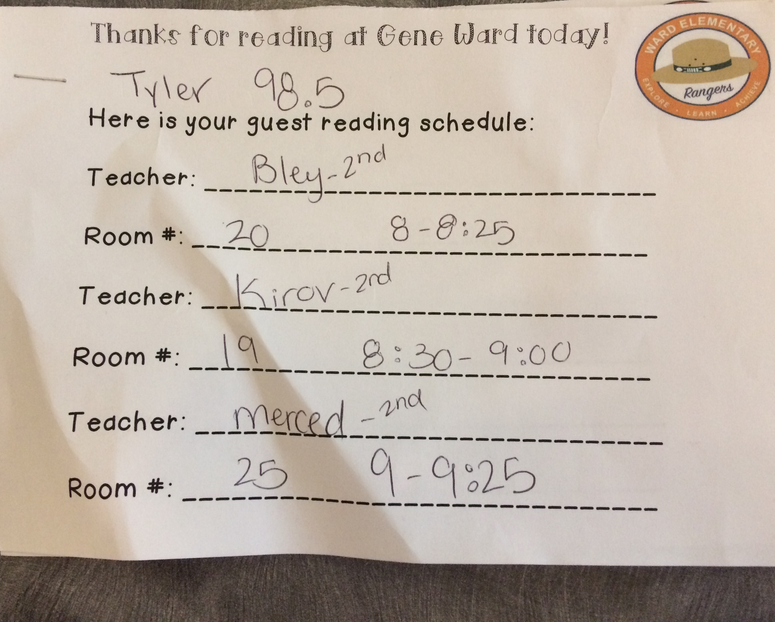 Thanks for reading at Gene Ward today!
WARD ELEMENTARY
Rangers
EXPLORE · LEARN · ACHIEVE
Tyler 98.5
Here is your guest reading schedule:
Teacher: Bley-2nd
Room #: 20 8-8:25
Teacher: Kirov-2nd
Room #: 19 8:30-9:00
Teacher: merced-2nd
Room #: 25 9-9:25